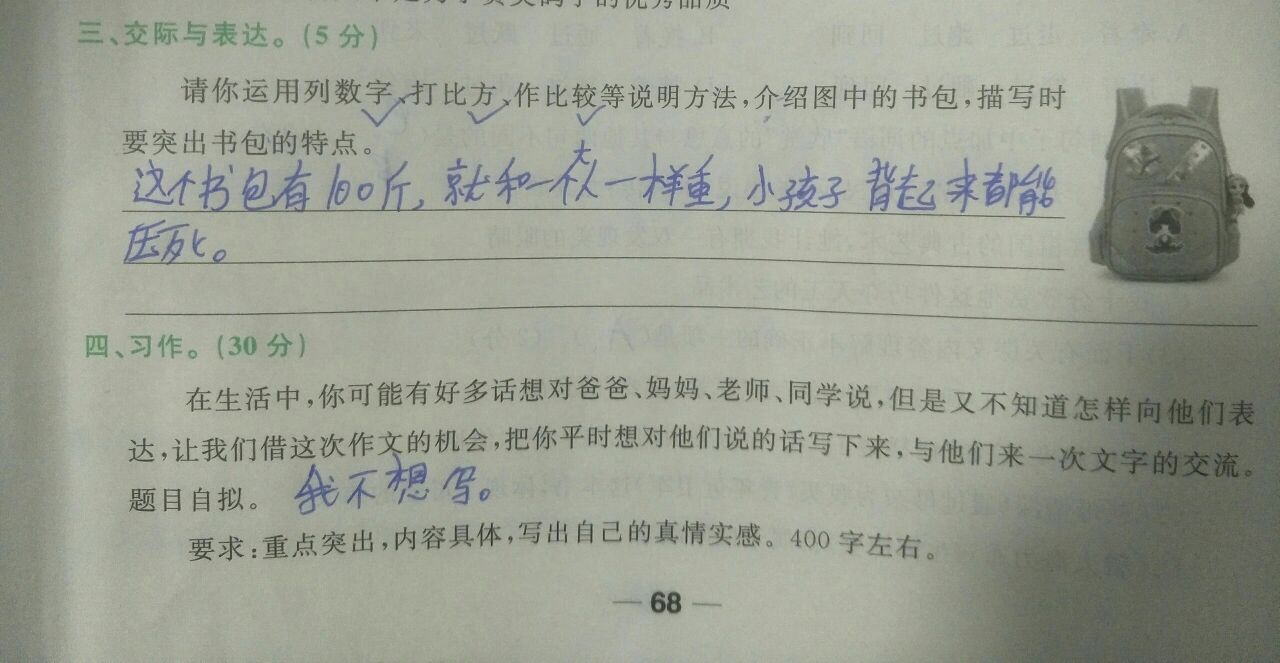 的优秀品质
三、交际与表达。(5分)
请你运用列数字、打比方、作比较等说明方法,介绍图中的书包,描写时
要突出书包的特点。
这个书包有100斤,就和一个大人一样重,小孩子背起来都能
压死。
四、习作。(30分)
在生活中,你可能有好多话想对爸爸、妈妈、老师、同学说,但是又不知道怎样向他们表
达,让我们借这次作文的机会,把你平时想对他们说的话写下来,与他们来一次文字的交流。
题目自拟。 我不想写。
要求:重点突出,内容具体,写出自己的真情实感。400字左右。
— 68 —